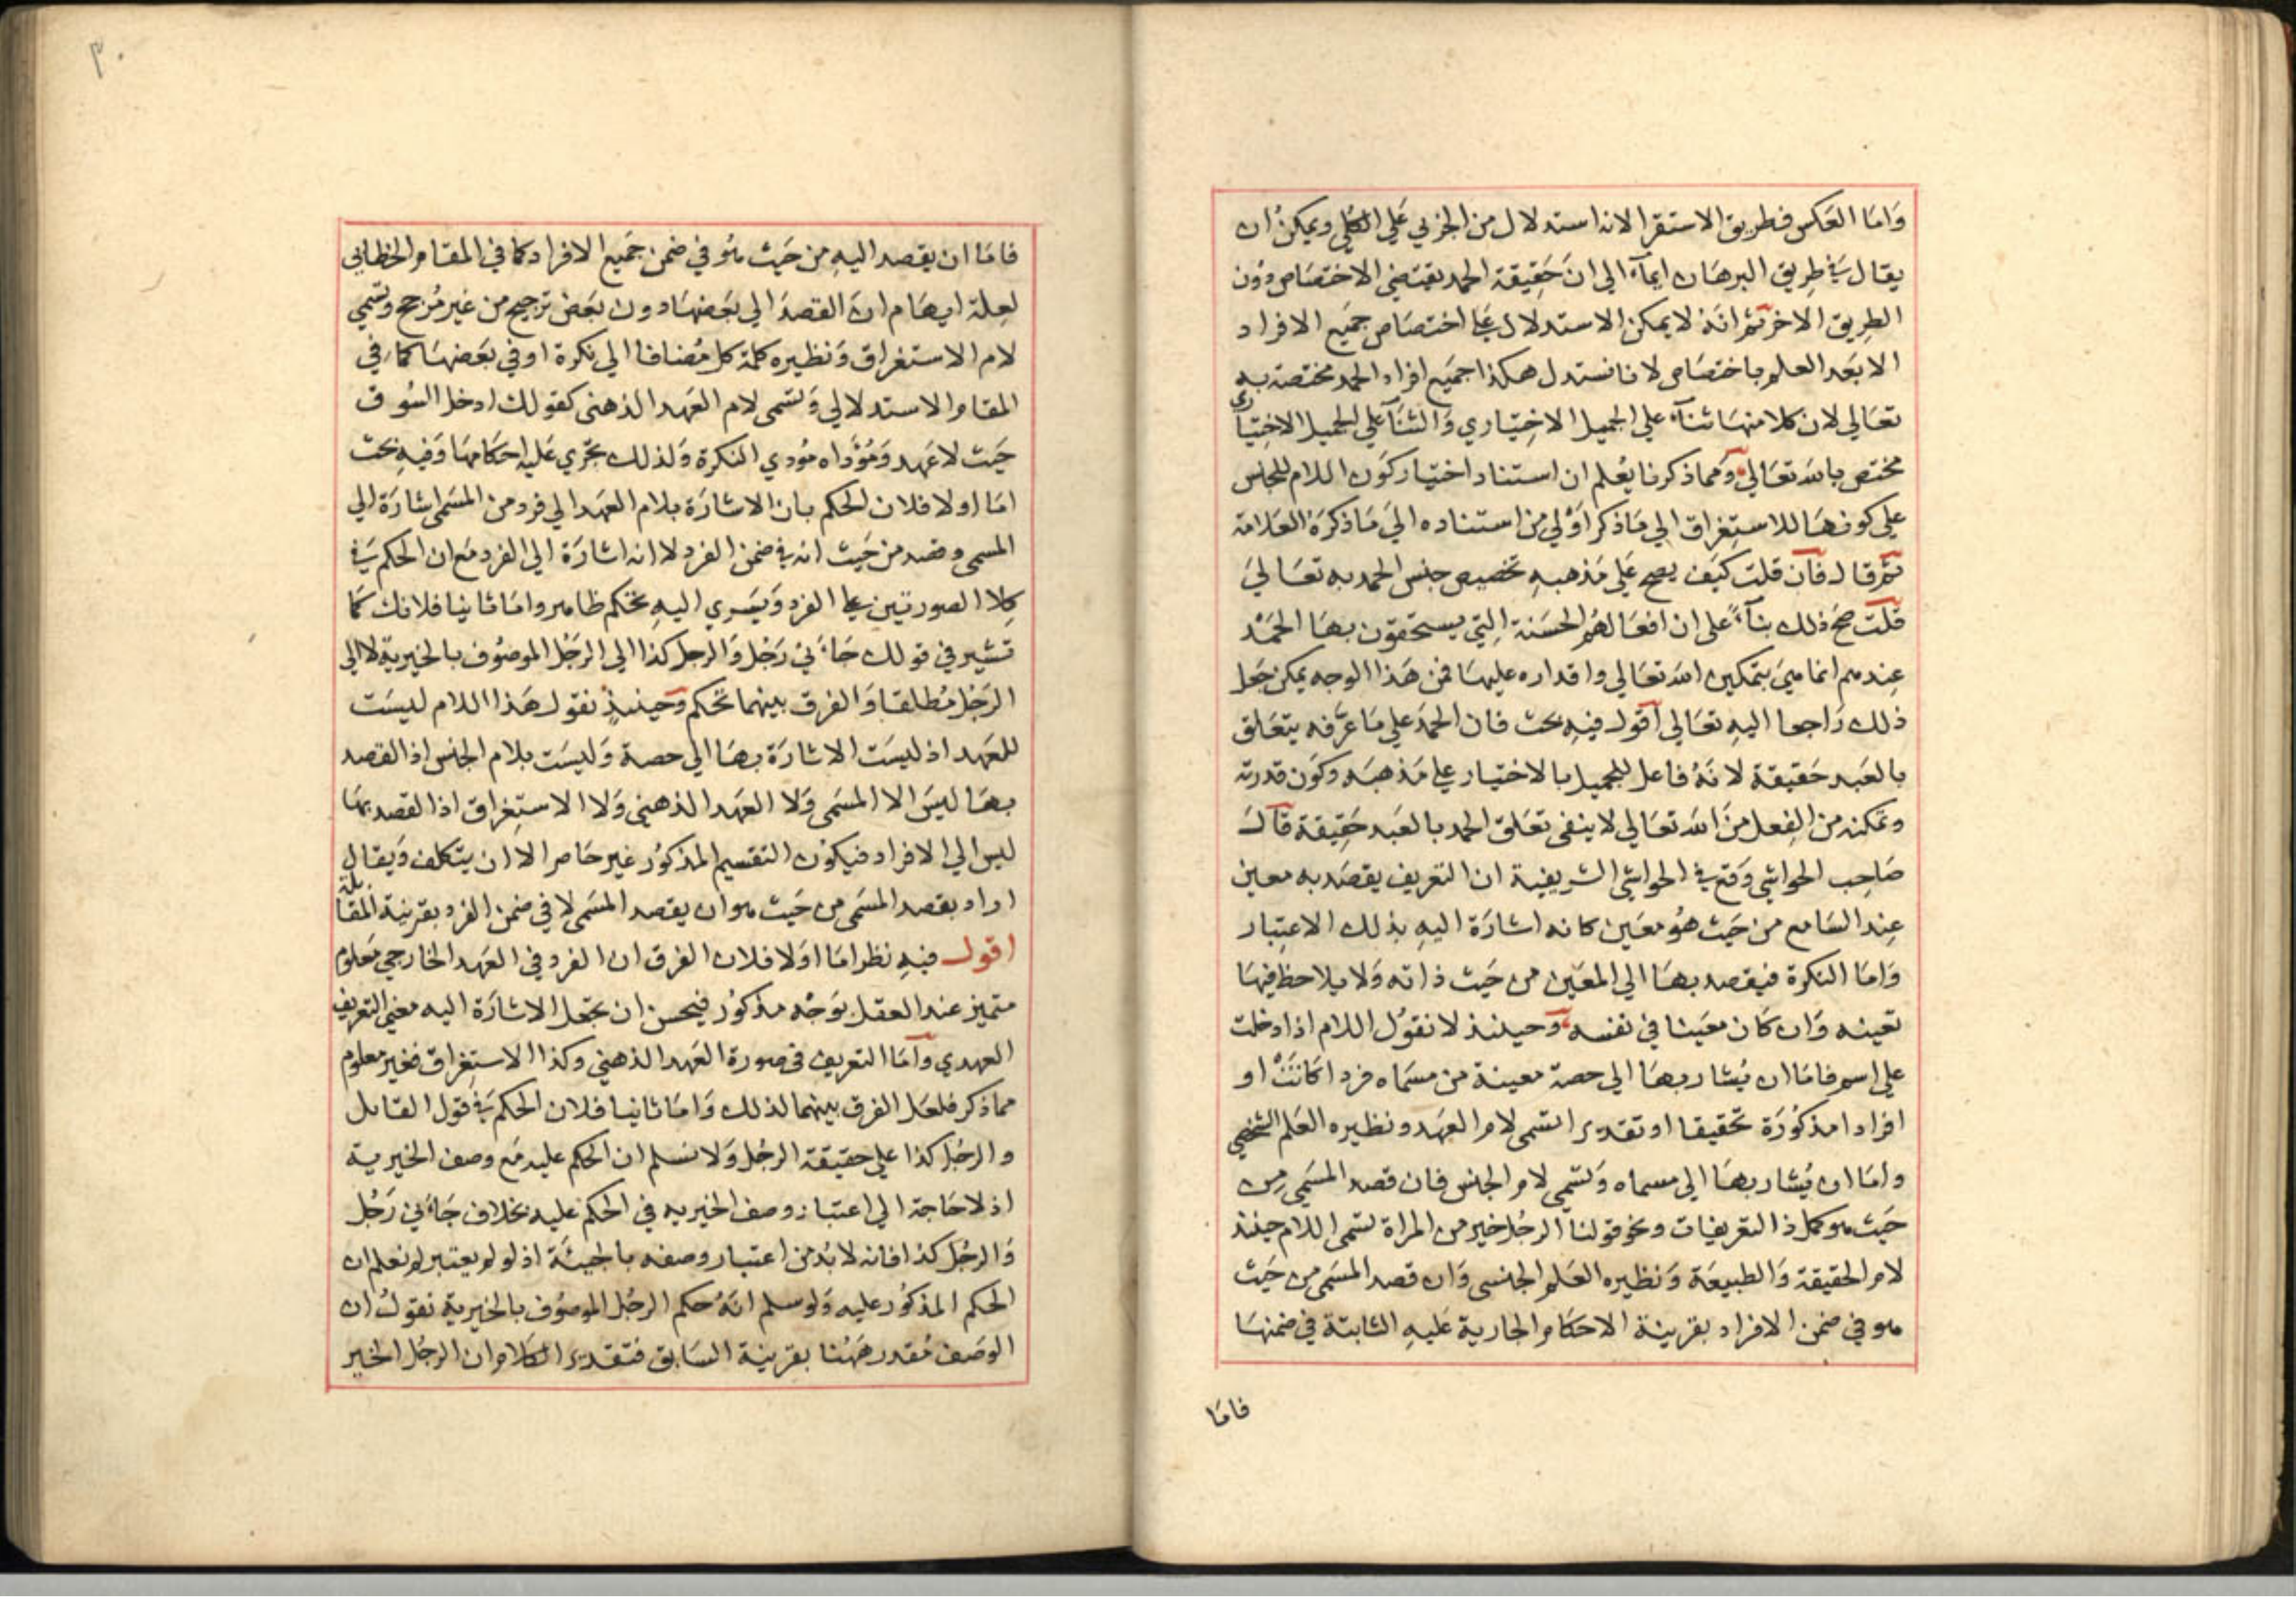 واما العكس فطريق الاستقرا لانه استدلال من الجزئي علي الكلي ويمكن ان
يقال في طريق البرهان ايماء الي ان حقيقة الحمد يقتضي الاختصاص دون
الطريق الاخر ثم انه لا يمكن الاستدلال علي اختصاص جميع الافراد
الا بعد العلم باختصاص لانا نستدل هكذا جميع افراد الحمد مختصة به
تعالي لان كلا منها ثناء علي الجميل الاختياري والثنا علي الجميل الاختياري
مختص بالله تعالي ومما ذكرنا يعلم ان استناد اختيار كون اللام للجنس
علي كونها للاستغراق الي ما ذكر اولي من استناده الي ما ذكره العلامة
ثم قال فان قلت كيف يصح علي مذهبه تخصيص جنس الحمد به تعالي
قلت صح ذلك بناء علي ان افعالهم الحسنة التي يستحقون بها الحمد
عندهم انما هي بتمكين الله تعالي واقداره عليها فمن هذا الوجه يمكن جعل
ذلك راجعا اليه تعالي اقول فيه بحث فان الحمد علي ما عرفه يتعلق
بالعبد حقيقة لانه فاعل للجميل بالاختيار علي مذهبه وكون قدرته
وتمكنه من الفعل من الله تعالي لا ينفي تعلق الحمد بالعبد حقيقة قال
صاحب الحواشي وقع في الحواشي الشريفية ان التعريف يقصد به معين
عند السامع من حيث هو معين كانه اشارة اليه بذلك الاعتبار
واما النكرة فيقصد بها الي المعين من حيث ذاته ولا يلاحظ فيها
تعينه وان كان معينا في نفسه وحينئذ لا نقول اللام اذا دخلت
علي اسم فاما ان يشار بها الي حصة معينة من مسماه فردا كانت او
افرادا مذكورة تحقيقا او تقديرا تسمي لام العهد ونظيره العلم الشخصي
واما ان يشار بها الي مسماه وتسمي لام الجنس فان قصد المسمي من
حيث هو كما في التعريفات ونحو قولنا الرجل خير من المراة تسمي اللام حينئذ
لام الحقيقة والطبيعة ونظيره العلم الجنسي وان قصد المسمي من حيث
هو في ضمن الافراد بقرينة الاحكام الجارية عليه الثابتة في ضمنها
فاما
٣٠
فاما ان يقصد اليه من حيث هو في ضمن جميع الافراد كما في المقام الخطابي
لعلة ايهام ان القصد الي بعضها دون بعض ترجيح من غير مرجح وتسمي
لام الاستغراق ونظيره كلمة كل مضافا الي نكرة او في بعضها كما في
المقام الاستدلالي وتسمي لام العهد الذهني كقولك ادخل السوق
حيث لا عهد ومؤداه مودي النكرة ولذلك تجري عليه احكامها وفيه بحث
اما اولا فلان الحكم بان الاشارة بلام العهد الي فرد من المسمي اشارة الي
المسمي وقصد من حيث انه في ضمن الفرد لا انه اشارة الي الفرد مع ان الحكم في
كلا الصورتين علي الفرد ويسري اليه تحكم ظاهر واما ثانيا فلانك كما
تشير في قولك جاءني رجل والرجل كذا الي الرجل الموصوف بالخيرية لا الي
الرجل مطلقا والفرق بينهما تحكم وحينئذ نقول هذا اللام ليست
للعهد اذ ليست الاشارة بها الي حصة وليست بلام الجنس اذ القصد
بها ليس الا المسمي ولا العهد الذهني ولا الاستغراق اذ القصد بها
ليس الي الافراد فيكون التقسيم المذكور غير حاصر الا ان يتكلف ويقال
اراد بقصد المسمي من حيث هو ان يقصد المسمي لا في ضمن الفرد بقرينة المقابلة
اقول فيه نظر اما اولا فلان الفرق ان الفرد في العهد الخارجي معلوم
متميز عند العقل بوجه مذكور فيحسن ان تجعل الاشارة اليه معني التعريف
العهدي واما التعريف في صورة العهد الذهني وكذا الاستغراق فغير معلوم
مما ذكر فلعل الفرق بينهما لذلك واما ثانيا فلان الحكم في قول القائل
والرجل كذا علي حقيقة الرجل ولا نسلم ان الحكم عليه مع وصف الخيرية
اذ لا حاجة الي اعتبار وصف الخيرية في الحكم عليه بخلاف جاءني رجل
والرجل كذا فانه لا بد من اعتبار وصفه بالجيئة اذ لو لم يعتبر لم نعلم ان
الحكم المذكور عليه ولو سلم انه حكم الرجل الموصوف بالخيرية نقول ان
الوصف مقدر ههنا بقرينة السابق فتقدير الكلام ان الرجل الخير